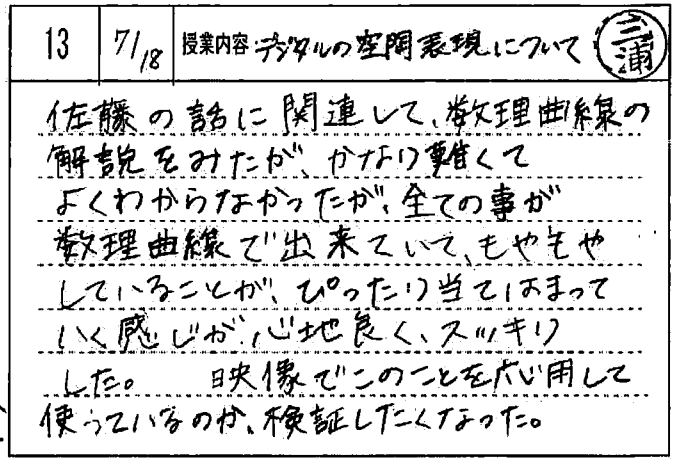 13 7/18 授業内容 デジタルの空間表現について 三浦
佐藤の話に関連して、数理曲線の
解説をみたが、かなり難くて
よくわからなかったが、全ての事が
数理曲線で出来ていて、もやもや
していることが、ぴったり当てはまって
いく感じが、心地良く、スッキリ
した。 映像でこのことを応用して
使っているのか、検証したくなった。